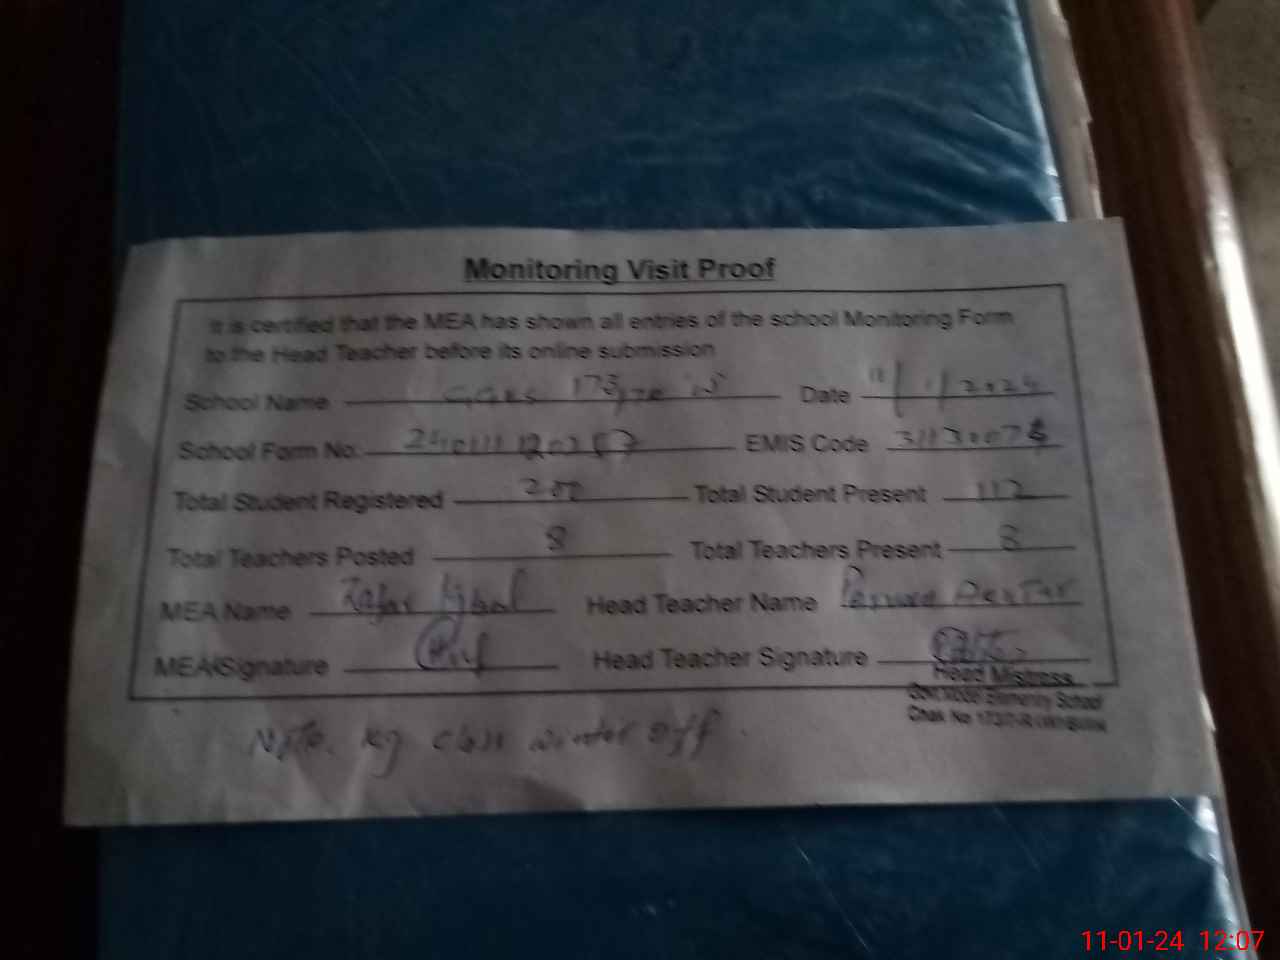 Monitoring Visit Proof
It is certified that the MEA has shown all entries of the school Monitoring Form
to the Head Teacher before its online submission
School Name 173 Date 11/1/2024
School Form No. EMIS Code
Total Student Registered 200 Total Student Present 112
Total Teachers Posted 8 Total Teachers Present 8
MEA Name Zafar Iqbal Head Teacher Name
MEA Signature Head Teacher Signature
Head Mistress
Elementary School
Chak No
Note. Kg class winter off.
11-01-24 12:07